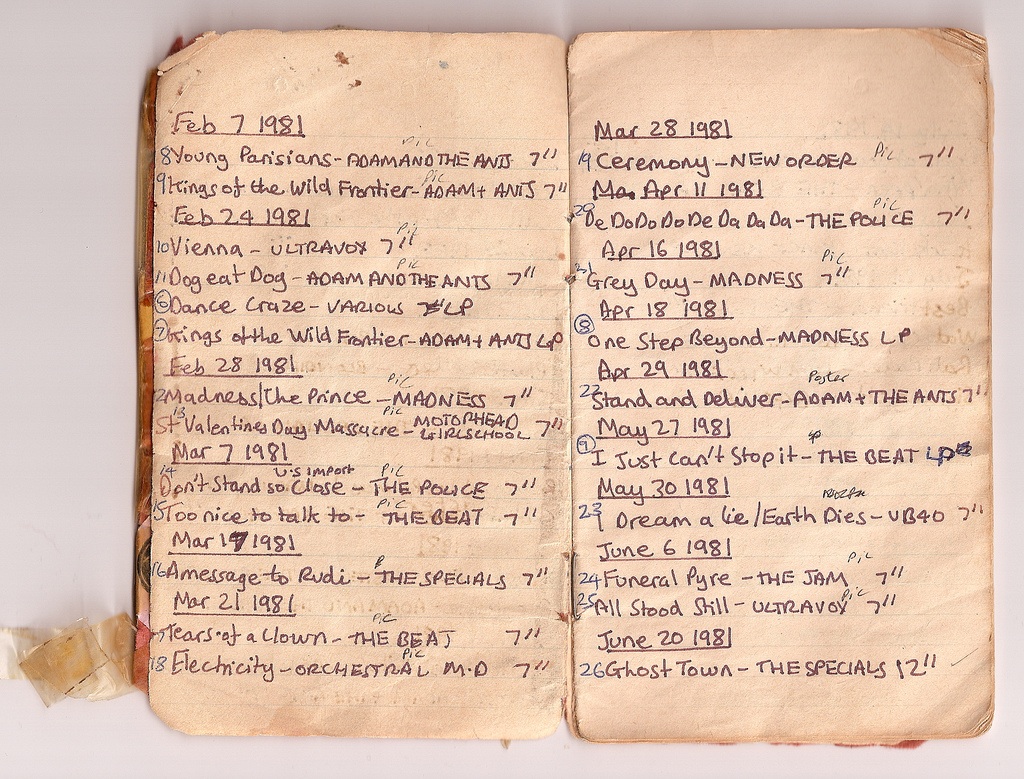 Feb 7 1981
8 Young Parisians - ADAM AND THE ANTS Pic 7"
9 Kings of the Wild Frontier - ADAM + ANTS Pic 7"
Feb 24 1981
10 Vienna - ULTRAVOX 7" Pic
11 Dog eat Dog - ADAM AND THE ANTS Pic 7"
6 Dance Craze - VARIOUS LP
7 Kings of the Wild Frontier - ADAM + ANTS LP
Feb 28 1981
12 Madness/The Prince - MADNESS Pic 7"
13 St Valentines Day Massacre - MOTORHEAD & GIRLSCHOOL Pic 7"
Mar 7 1981
14 Don't Stand so Close - THE POLICE U.S import Pic 7"
15 Too nice to talk to - THE BEAT Pic 7"
Mar 17 1981
16 A message to Rudi - THE SPECIALS P 7"
Mar 21 1981
17 Tears of a Clown - THE BEAT Pic 7"
18 Electricity - ORCHESTRAL M.D Pic 7"
Mar 28 1981
19 Ceremony - NEW ORDER Pic 7"
Ma Apr 11 1981
20 De Do Do Do De Da Da Da - THE POLICE Pic 7"
Apr 16 1981
21 Grey Day - MADNESS Pic 7"
Apr 18 1981
8 One Step Beyond - MADNESS LP
Apr 29 1981
22 Stand and Deliver - ADAM + THE ANTS Poster 7"
May 27 1981
9 I Just Can't Stop it - THE BEAT LP
May 30 1981
23 I Dream a lie/Earth Dies - UB40 7"
June 6 1981
24 Funeral Pyre - THE JAM Pic 7"
25 All Stood Still - ULTRAVOX Pic 7"
June 20 1981
26 Ghost Town - THE SPECIALS 12"